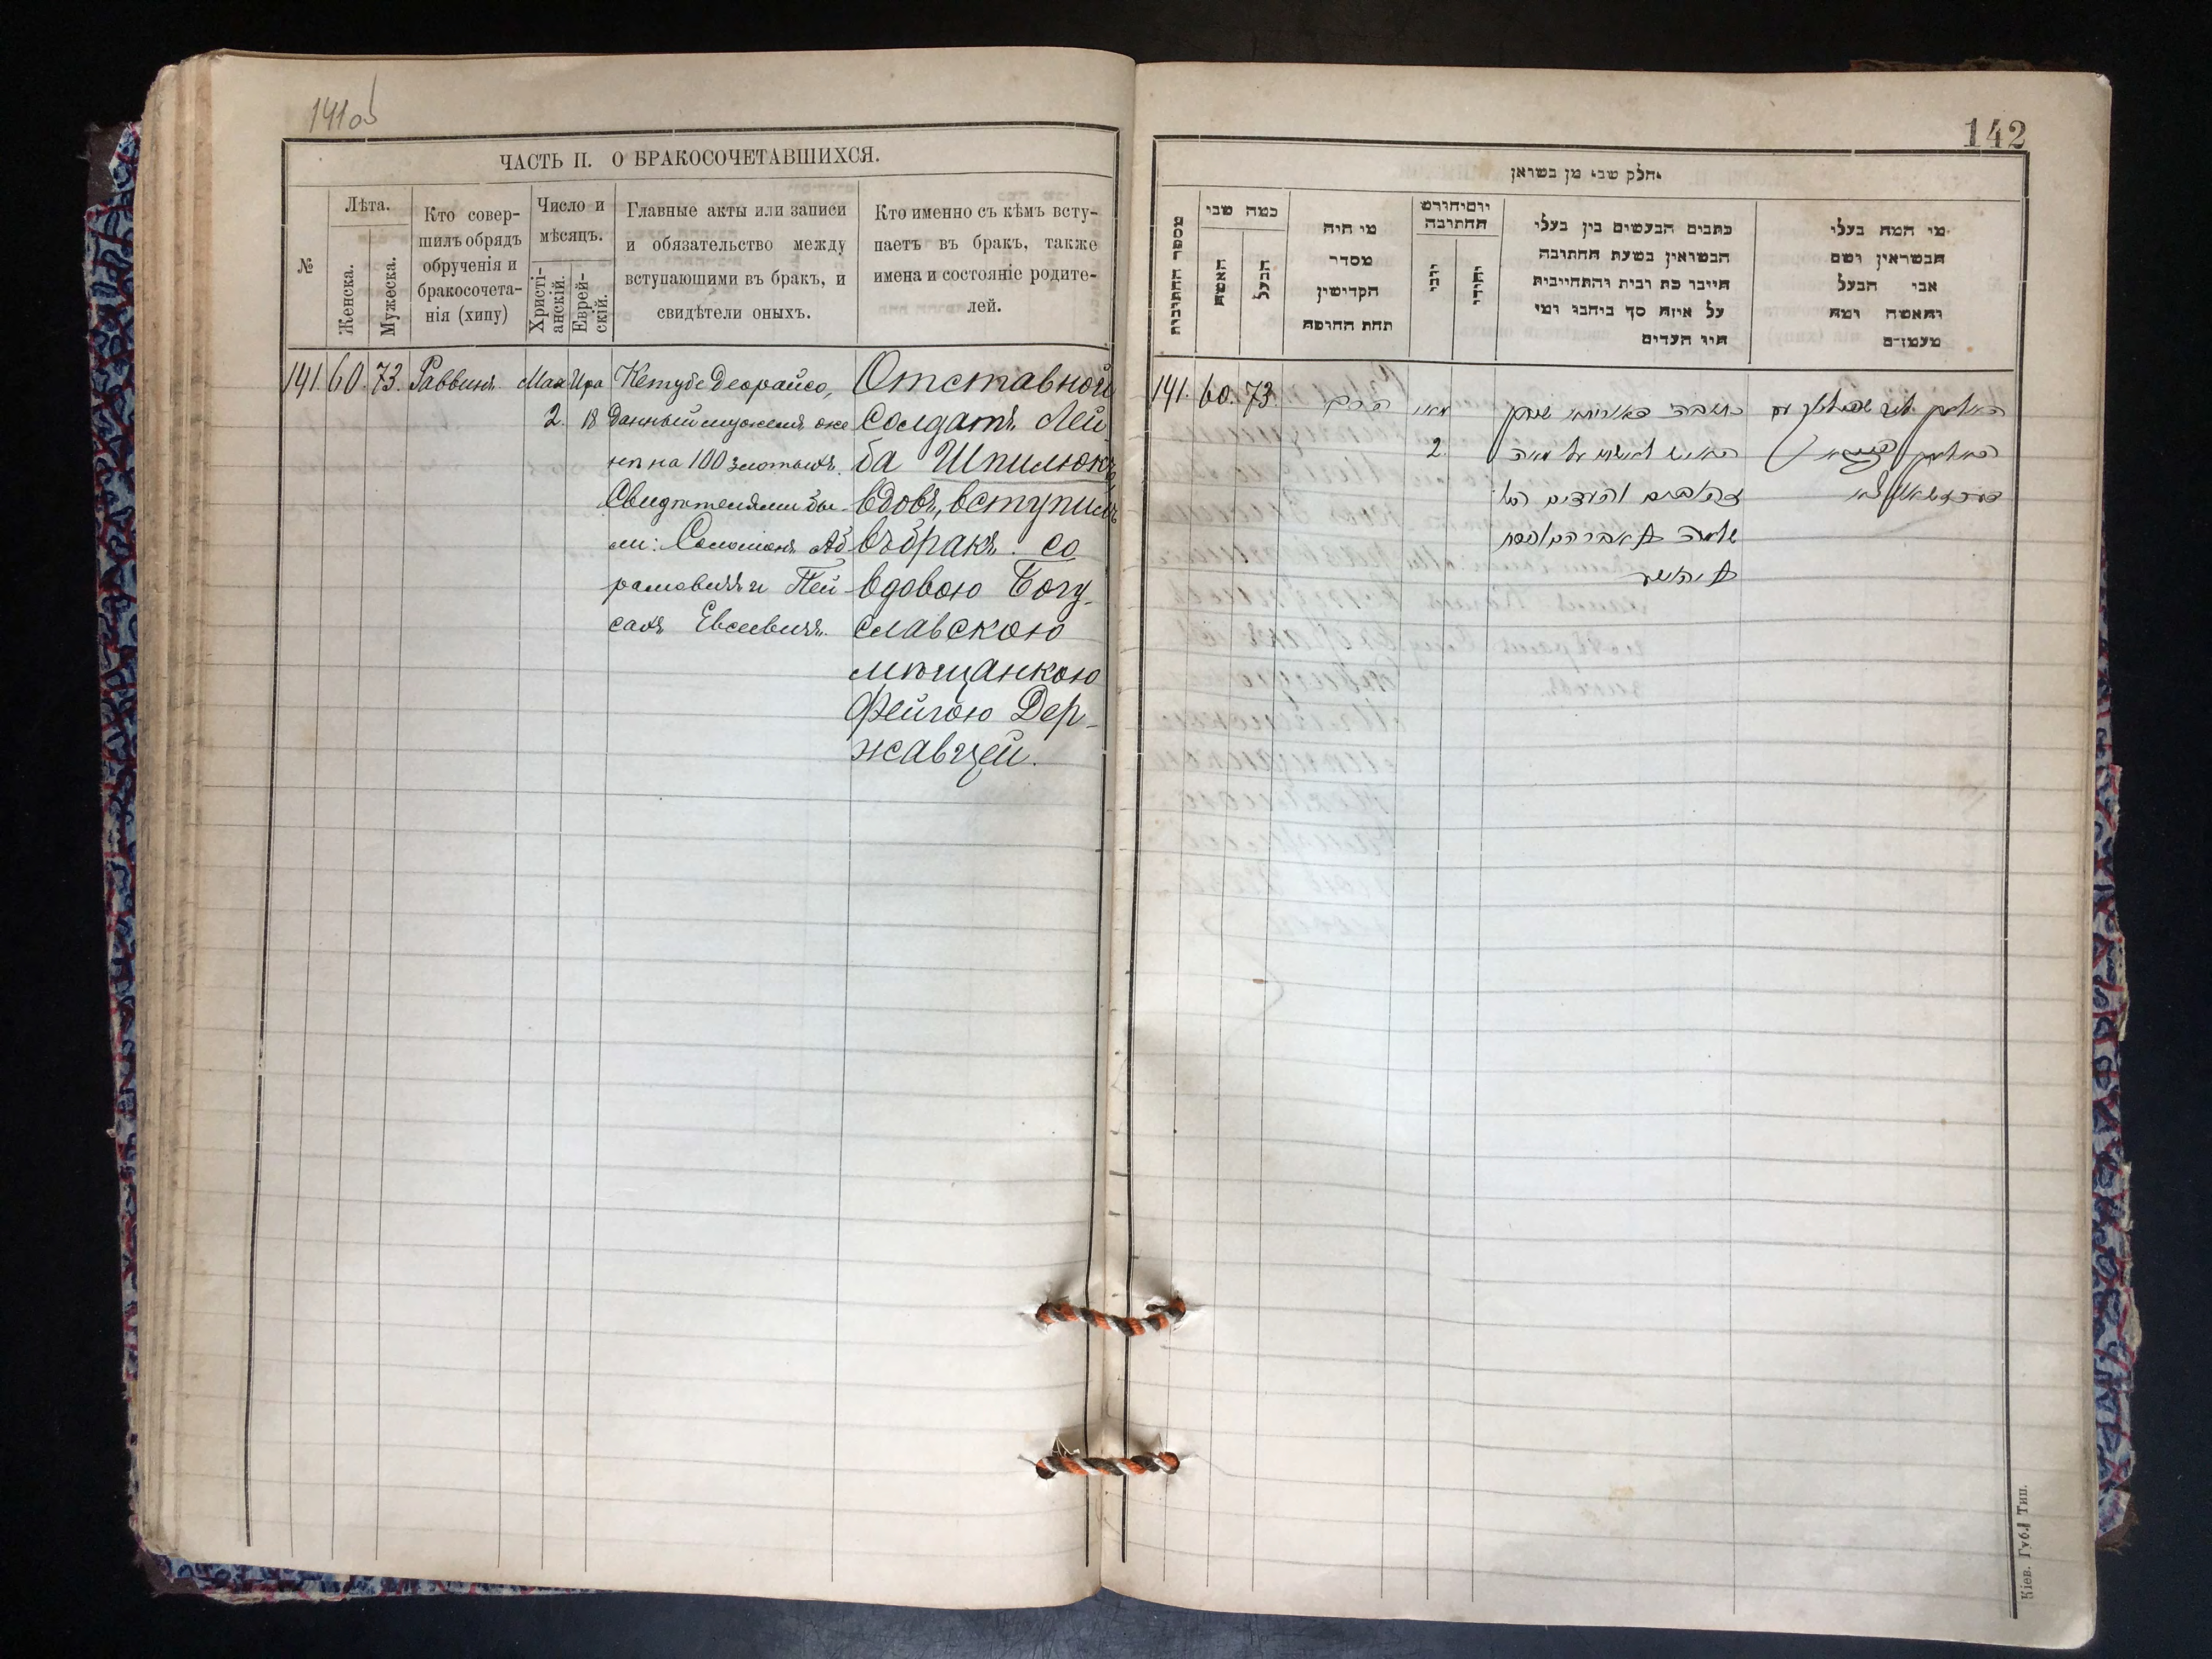 141об
ЧАСТЬ II. О БРАКОСОЧЕТАВШИХСЯ.
№
Лѣта.
Женска.
Мужеска.
Кто совер-
шилъ обрядъ
обрученія и
бракосочета-
нія (хипу)
Число и
мѣсяцъ.
Христі-
анскій.
Еврей-
скій.
Главные акты или записи
и обязательство между
вступающими въ бракъ, и
свидѣтели оныхъ.
Кто именно съ кѣмъ всту-
паетъ въ бракъ, также
имена и состояніе родите-
лей.
141. 60. 73. Раввинъ
Мая
2.
Ира
18
Кетубе деорайсо,
данный мужемъ же
нѣ на 100 злотыхъ.
Свидѣтелями бы-
ли: Соломонъ Аб
рамовичъ и Пей-
сахъ Евсеевичъ.
Отставной
солдатъ Лей-
ба Шпилюкъ,
вдовъ, вступилъ
въ бракъ со
вдовою Богу-
славскою
мѣщанкою
Фейгою Дер-
жавцей.
142
חלק שני מן נשואין
מספר החתונות
כמה שני
האשה
הבעל
מי היה
מסדר
הקדושין
תחת החופה
יום וחודש
החתונה
יוני
יהודי
כתבים הנעשים בין בעלי
הנשואין בשעת החתונה
היינו כת ובית והתחייבות
על איזה סך ביחבו ומי
היו העדים
מי המה בעלי
הנשואין ושם
אבי הבעל
והאשה ומה
מעמדם
141. 60. 73.
הרב
מאי
2.
כתובה דאורייתא שנתן
האיש לאשתו על מאה
זהובים והעדים היו
שלמה ב אברהם ופסח
ב יהושע
האלמן
Кіев. Губ. Тип.